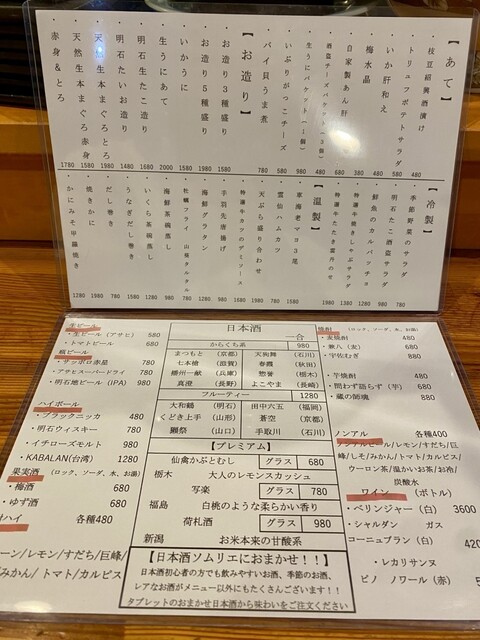 【あて】
・枝豆紹興酒漬け 480
・トリュフポテトサラダ 580
・いか肝和え 480
・梅水晶 480
・自家製あん肝 680
・いぶりがっこチーズ 580
・バイ貝うま煮 780
【お造り】
・お造り3種盛り 1580
・お造り5種盛り 1980
・いかうに 1580
・生うにあて 2000
・明石生たこ造り 1680
・明石たいお造り 1480
・天然生本まぐろとろ 1980
・天然生本まぐろ赤身 1580
・赤身&とろ 1780
【冷製】
・季節野菜のサラダ
・明石たこ酒盗サラダ
・鮮魚のカルパッチョ
・特選牛焼きしゃぶサラダ
【温製】
・東海老マヨ3尾
・雲仙ハムカツ
・天ぷら盛り合わせ
・特選牛カツのデミソース
・手羽先唐揚げ
・海鮮グラタン
・牡蠣フライ 山葵タルタル
・海鮮茶碗蒸し
・いくら茶碗蒸し
・うなぎだし巻き
・だし巻き
・焼きかに
・かにみそ甲羅焼き
生ビール
・生ビール(アサヒ) 580
・トマトビール 680
瓶ビール
・サッポロ赤星 780
・アサヒスーパードライ 780
・明石地ビール(IPA) 980
ハイボール
・ブラックニッカ 480
・明石ウィスキー 780
・イチローズモルト 980
・KABALAN(台湾) 1280
果実酒 (ロック、ソーダ、水、お湯)
・梅酒 680
・ゆず酒 680
ハイ 各種480
ーン/レモン/すだち/巨峰/
みかん/トマト/カルピス
日本酒
一合
からくち系 980
まつもと (京都) 天狗舞 (石川)
七本槍 (滋賀) 春霞 (秋田)
播州一献 (兵庫) 惣誉 (栃木)
真澄 (長野) よこやま (長崎)
フルーティー 1280
大和鶴 (明石) 田中六五 (福岡)
くどき上手 (山形) 蒼空 (京都)
獺祭 (山口) 手取川 (石川)
【プレミアム】
仙禽かぶとむし グラス 680
栃木 大人のレモンスカッシュ
写楽 グラス 780
福島 白桃のような柔らかい香り
荷札酒 グラス 980
新潟 お米本来の甘酸系
【日本酒ソムリエにおまかせ!!】
日本酒初心者の方でも飲みやすいお酒、季節のお酒、
レアなお酒がメニュー以外にもたくさんございます!!
タブレットのおまかせ日本酒から味わいをご注文ください
焼酎 (ロック、ソーダ、水、お湯)
・麦焼酎 480
・兼八(麦) 680
・宇佐むぎ 880
・芋焼酎 480
・問わず語らず(芋) 680
・蔵の師魂 880
ノンアル 各種400
ノンアルビール/レモン/すだち/巨
峰/しそ/みかん/トマト/カルピス/
ウーロン茶/温かいお茶/お冷/
炭酸水
ワイン (ボトル)
・ベリンジャー(白) 3600
・シャルダン ガス
コーニュブラン(白) 420
・レカリサンヌ
ピノ ノワール(赤) 5